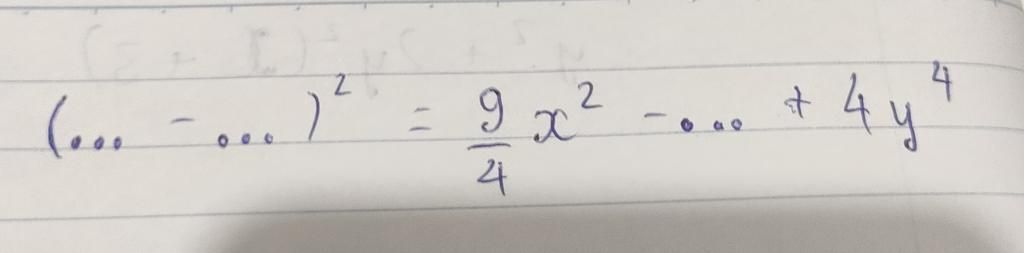 (... - ...)² = 9/4 x² - ... + 4y⁴